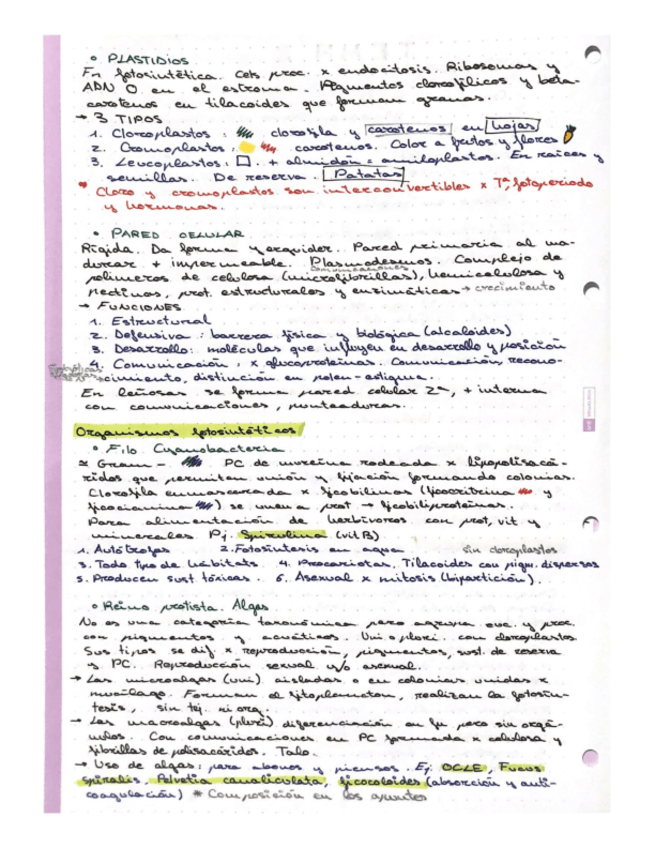 • PLASTIDIOS
Fn fotosintética. Cels proc. x endocitosis. Ribosomas y
ADN O en el estroma. Pigmentos clorofílicos y beta-
carotenos en tilacoides que forman granas.
→ 3 TIPOS
1. Cloroplastos: clorofila y carotenos en hojas
2. Cromoplastos: carotenos. Color a frutos y flores
3. Leucoplastos: □. + almidón = amiloplastos. En raíces y
semillas. De reserva. Patatas
* Cloro y cromoplastos son interconvertibles x Tª, fotoperiodo
y hormonas.
• PARED CELULAR
Rígida. Da forma y Pared primaria al ma-
durar + impermeable. Plasmodesmos. Complejo de
comunicaciones
polímeros de celulosa (microfibrillas), hemicelulosa y
pectinas, prot. estructurales y enzimáticas → crecimiento
→ FUNCIONES
1. Estructural
2. Defensiva: barrera física y biológica (alcaloides)
3. Desarrollo: moléculas que influyen en desarrollo y posición
4. Comunicación: x glucoproteínas. Comunicación, recono-
cimiento, distinción en polen-estigma.
En leñosas se forma pared celular 2ª, + interna
con comunicaciones, punteaduras.
Organismos fotosintéticos
• Filo Cyanobacteria
≃ Gram - PC de mureína rodeada x lipopolisacá-
ridos que permiten unión y fijación formando colonias.
Clorofila enmascarada x ficobilinas (ficoeritrina y
ficocianina) se unen a prot → ficobiliproteínas.
Para alimentación de herbívoros con prot, vit y
minerales. Pj. Spirulina (vit B)
1. Autótrofas 2. Fotosíntesis en agua sin cloroplastos
3. Todo tipo de hábitats 4. Procariotas. Tilacoides con pigm. dispersos
5. Producen sust. tóxicas. 6. Asexual x mitosis (bipartición).
• Reino protista. Algas
No es una categoría taxonómica pero agrupa euc. y proc.
con pigmentos y acuáticos. Uni o pluri. con cloroplastos
Sus tipos se dif x reproducción, pigmentos, sust. de reserva
y PC. Reproducción sexual y/o asexual.
→ Las microalgas (uni) aisladas o en colonias unidas x
mucílago. Forman el fitoplancton, realizan la fotosín-
tesis, sin tej. ni org.
→ Las macroalgas (pluri) diferenciación en fn pero sin orgá-
nulos. Con comunicaciones en PC formada x celulosa y
fibrillas de polisacáridos. Talo.
→ Uso de algas: para abonos y piensos. Ej: OCLE, Fucus
spiralis, Pelvetia canaliculata, ficocoloides (absorción y anti-
coagulación) * Composición en los apuntes